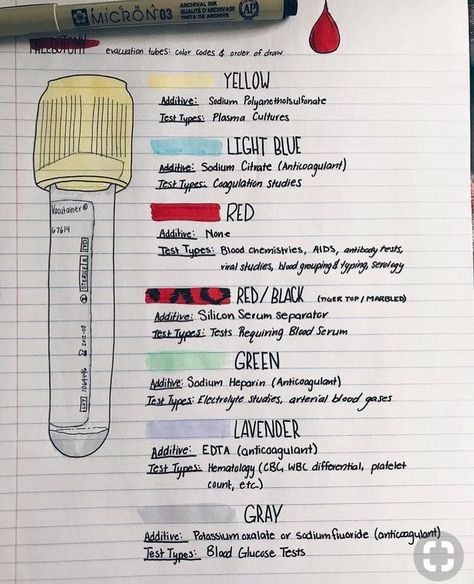 SIGMA
MICRON 03
ARCHIVAL INK
QUALITÉ D'ARCHIVAGE
TINTA DE ARCHIVO
AP
PHLEBOTOMY
evacuation tubes: color codes & order of draw
YELLOW
Additive: Sodium Polyanetholsulfonate
Test Types: Plasma Cultures
LIGHT BLUE
Additive: Sodium Citrate (Anticoagulant)
Test Types: Coagulation studies
RED
Additive: None
Test Types: Blood chemistries, AIDS, antibody tests,
viral studies, blood grouping & typing, serology
RED/BLACK (TIGER TOP / MARBLED)
Additive: Silicon Serum separator
Test Types: Tests Requiring Blood Serum
GREEN
Additive: Sodium Heparin (Anticoagulant)
Test Types: Electrolyte studies, arterial blood gases
LAVENDER
Additive: EDTA (anticoagulant)
Test Types: Hematology (CBC, WBC differential, platelet
count, etc.)
GRAY
Additive: Potassium oxalate or sodium fluoride (anticoagulant)
Test Types: Blood Glucose Tests
Vacutainer®
67614
STERILE
LOT